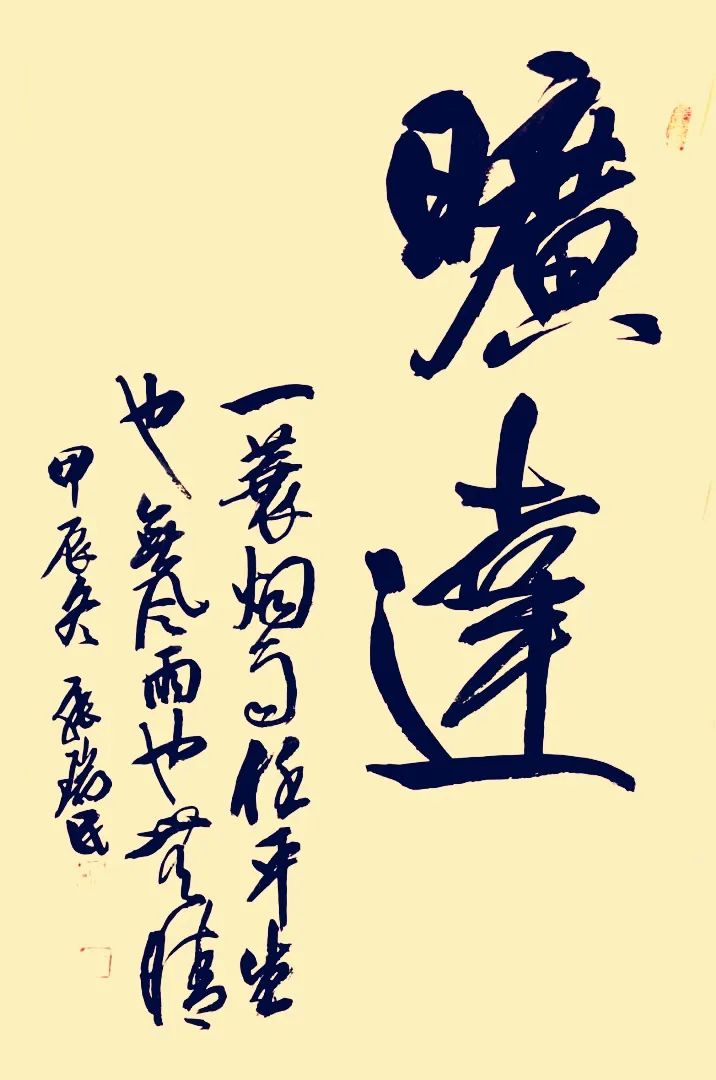 曠達
一蓑烟雨任平生
也無風雨也無晴
甲辰冬 張瑞民